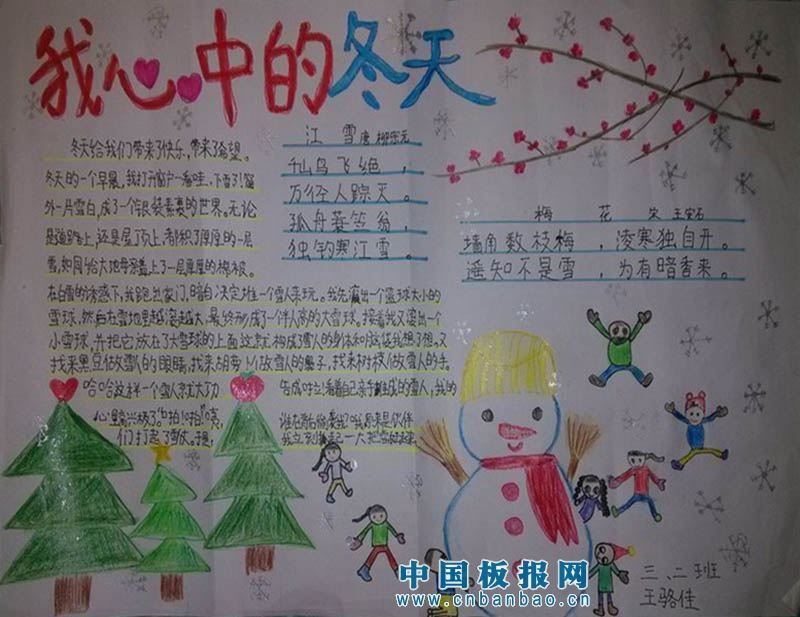 我心中的冬天
冬天给我们带来了快乐，带来了希望。
冬天的一个早晨，我打开窗户一看哇、下雪了！窗
外一片雪白，成了一个银装素裹的世界。无论
是道路上，还是屋顶上，都积了厚厚的一层
雪，如同给大地母亲盖上了一层厚厚的棉被。
在白雪的诱惑下，我跑出家门，暗自决定堆一个雪人来玩。我先滚出一个篮球大小的
雪球，然后在雪地里越滚越大，最终形成了一个半人高的大雪球。接着我又滚出一个
小雪球，并把它放在了大雪球的上面这就构成了雪人的身体和
找来黑豆做雪人的眼睛，找来胡萝卜做雪人的鼻子，找来树枝做雪人的手
哈哈这样一个雪人就大功
告成啦！看着自己亲手堆成的雪人，我的
心里高兴极了。
们打起了雪仗。
江 雪 唐 柳宗元
千山鸟飞绝，
万径人踪灭。
孤舟蓑笠翁，
独钓寒江雪。
梅 花 宋 王安石
墙角数枝梅，凌寒独自开。
遥知不是雪，为有暗香来。
三、二班
王骆佳
中国板报网
www.cnbanbao.cn